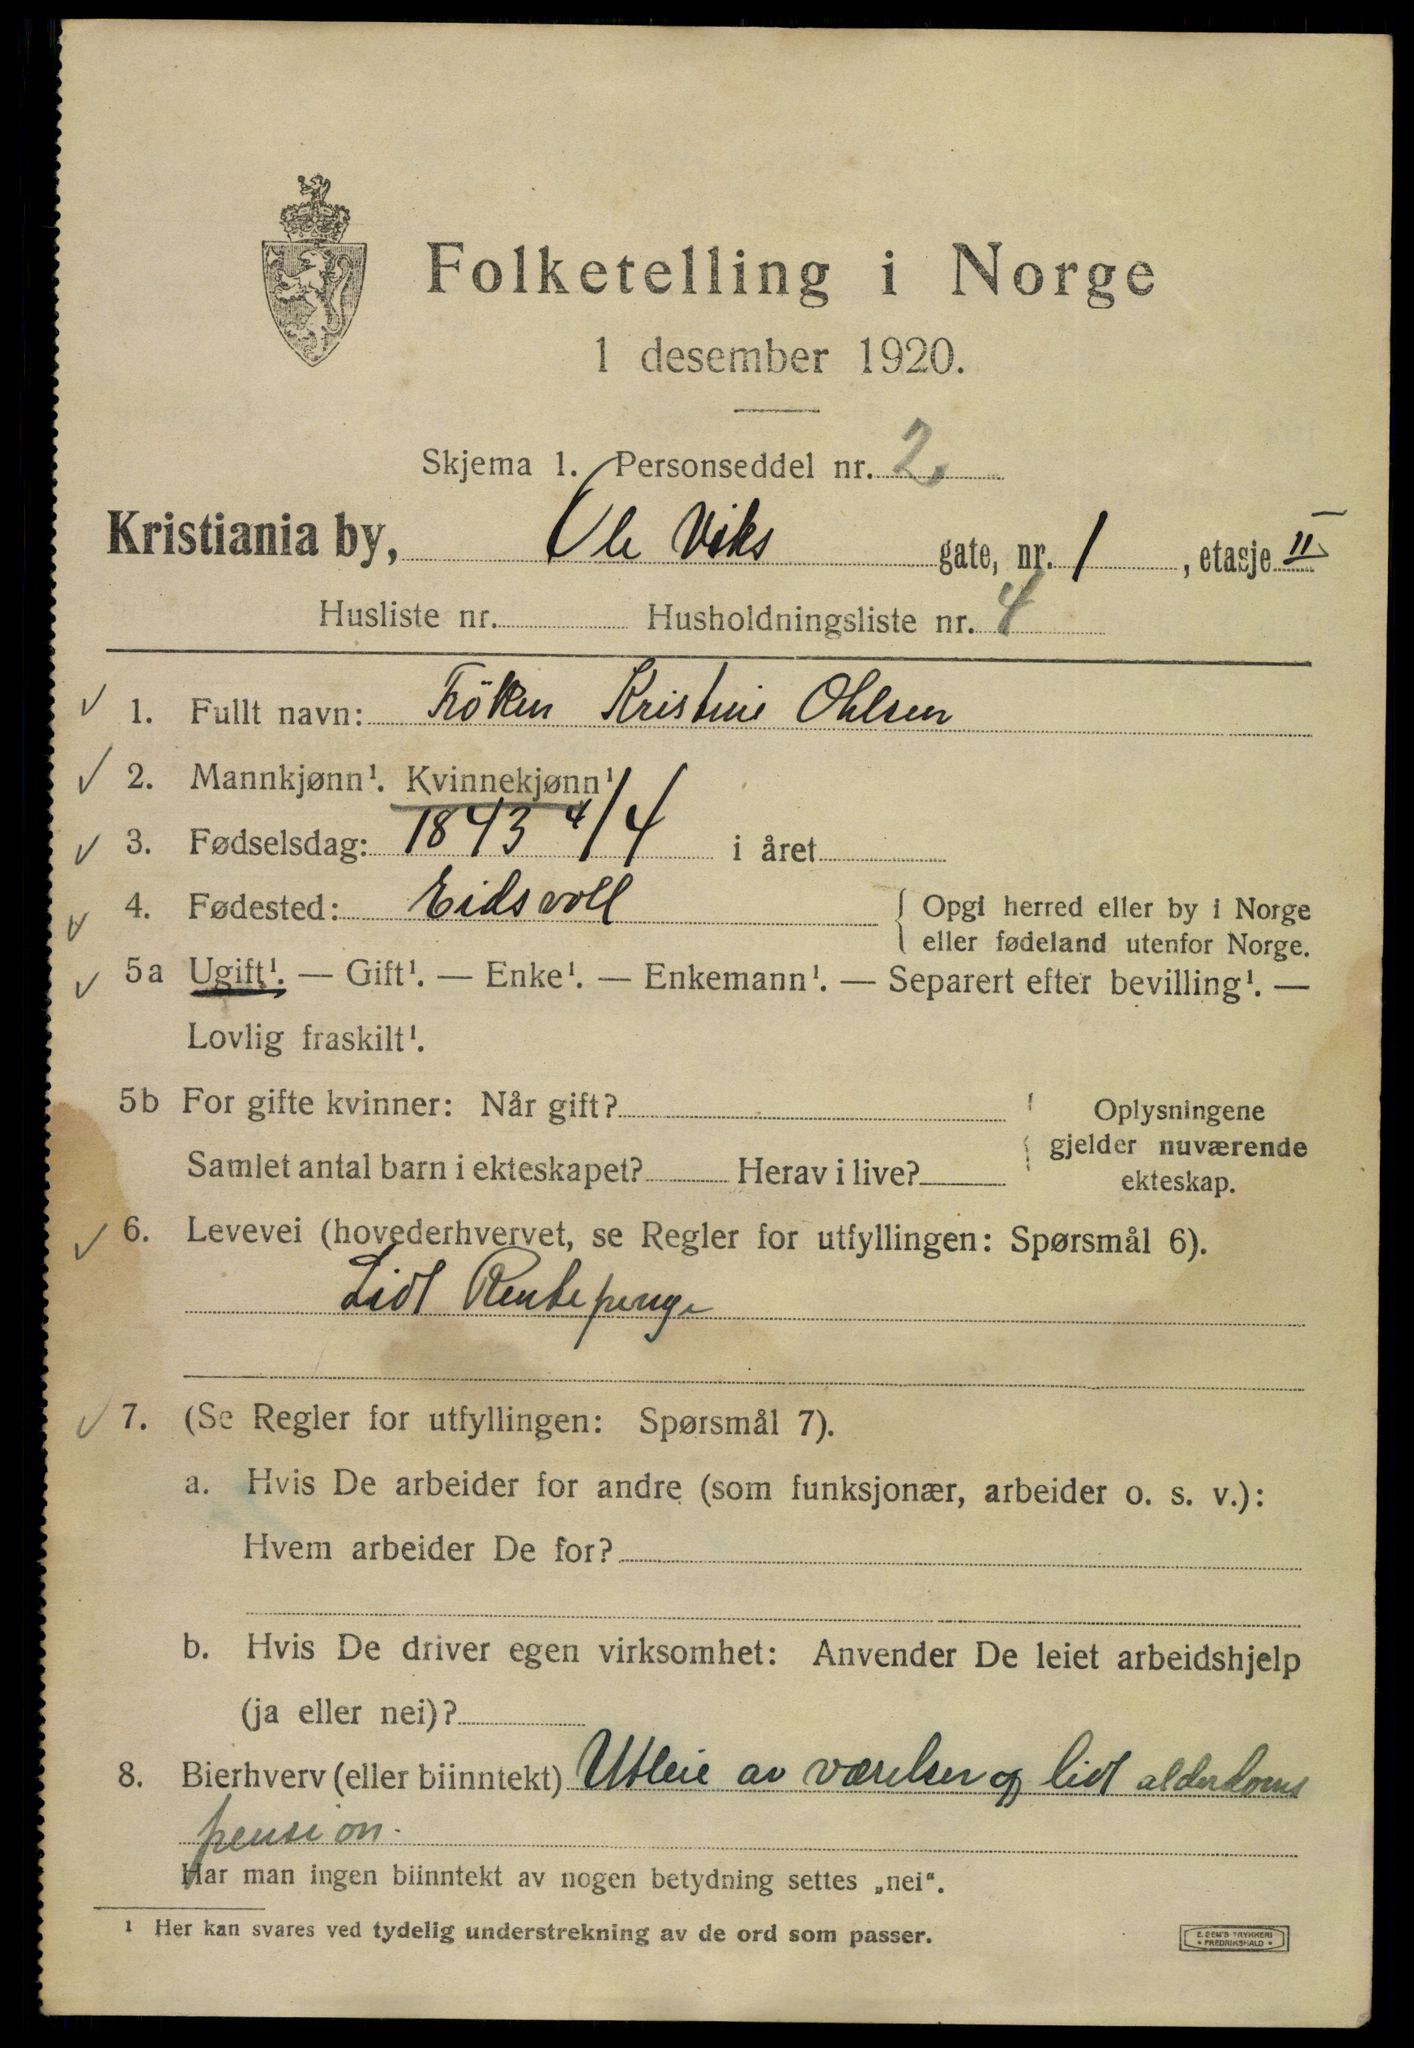 Folketelling i Norge
1 desember 1920.
Skjema 1. Personseddel nr. 2.
Kristiania by, Ole Viks gate, nr. 1, etasje II
Husliste nr. Husholdningsliste nr. 4
1. Fullt navn: Fröken Kristine Ohlsen
2. Mannkjønn¹. Kvinnekjønn¹
3. Fødselsdag: 1843 4/4 i året
4. Fødested: Eidsvoll { Opgi herred eller by i Norge
eller fødeland utenfor Norge.
5a Ugift¹. — Gift¹. — Enke¹. — Enkemann¹. — Separert efter bevilling¹. —
Lovlig fraskilt¹.
5b For gifte kvinner: Når gift? Oplysningene
gjelder nuværende
Samlet antal barn i ekteskapet? Herav i live? ekteskap.
6. Levevei (hovederhvervet, se Regler for utfyllingen: Spørsmål 6).
Lidt Rentepenge
7. (Se Regler for utfyllingen: Spørsmål 7).
a. Hvis De arbeider for andre (som funksjonær, arbeider o. s. v.):
Hvem arbeider De for?
b. Hvis De driver egen virksomhet: Anvender De leiet arbeidshjelp
(ja eller nei)?
8. Bierhverv (eller biinntekt) Utleie av værelser og lidt alderdoms
pension.
Har man ingen biinntekt av nogen betydning settes „nei“.
¹ Her kan svares ved tydelig understrekning av de ord som passer.
E. SEM'S TRYKKERI
FREDRIKSHALD